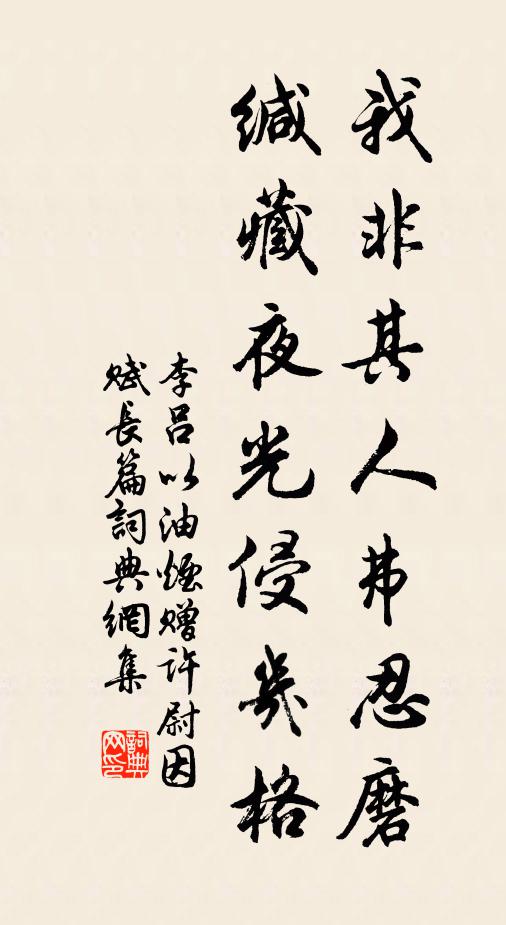 我非其人弗忍磨
缄藏夜光侵几格
李吕以油煙赠许尉因
赋长篇詞典網集
詞典
网印